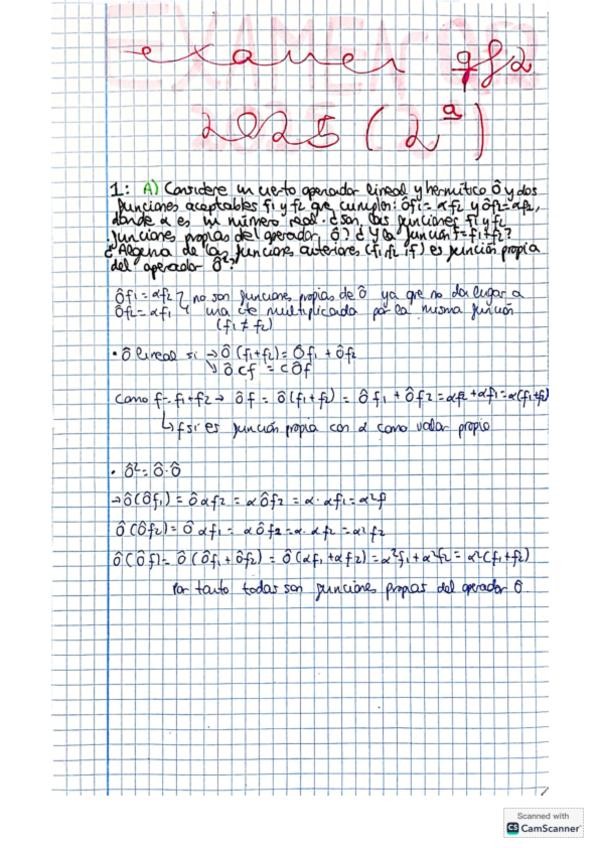 examen qf2
2025 (2ª)
1: A) Considere un cierto operador lineal y hermítico Ô y dos
funciones aceptables f1 y f2 que cumplen: Ôf1 = αf2 y Ôf2 = αf1,
donde α es un número real. ¿Son las funciones f1 y f2
funciones propias del operador Ô? ¿Y la función f = f1 + f2?
¿Alguna de las funciones anteriores (f1, f2, f) es función propia
del operador Ô²?
Ôf1 = αf2 no son funciones propias de Ô ya que no da lugar a
Ôf2 = αf1 una cte multiplicada por la misma función
(f1 ≠ f2)
• Ô lineal si → Ô(f1+f2) = Ôf1 + Ôf2
↘ Ôcf = cÔf
Como f = f1+f2 → Ôf = Ô(f1+f2) = Ôf1 + Ôf2 = αf2 + αf1 = α(f1+f2)
↳ f si es función propia con α como valor propio
• Ô² = Ô·Ô
→ Ô(Ôf1) = Ôαf2 = αÔf2 = α·αf1 = α²f
Ô(Ôf2) = Ôαf1 = αÔf2 = α·αf2 = α²f2
Ô(Ôf) = Ô(Ôf1 + Ôf2) = Ô(αf1 + αf2) = α²f1 + α²f2 = α²(f1+f2)
Por tanto todas son funciones propias del operador Ô.
Scanned with
CS CamScanner